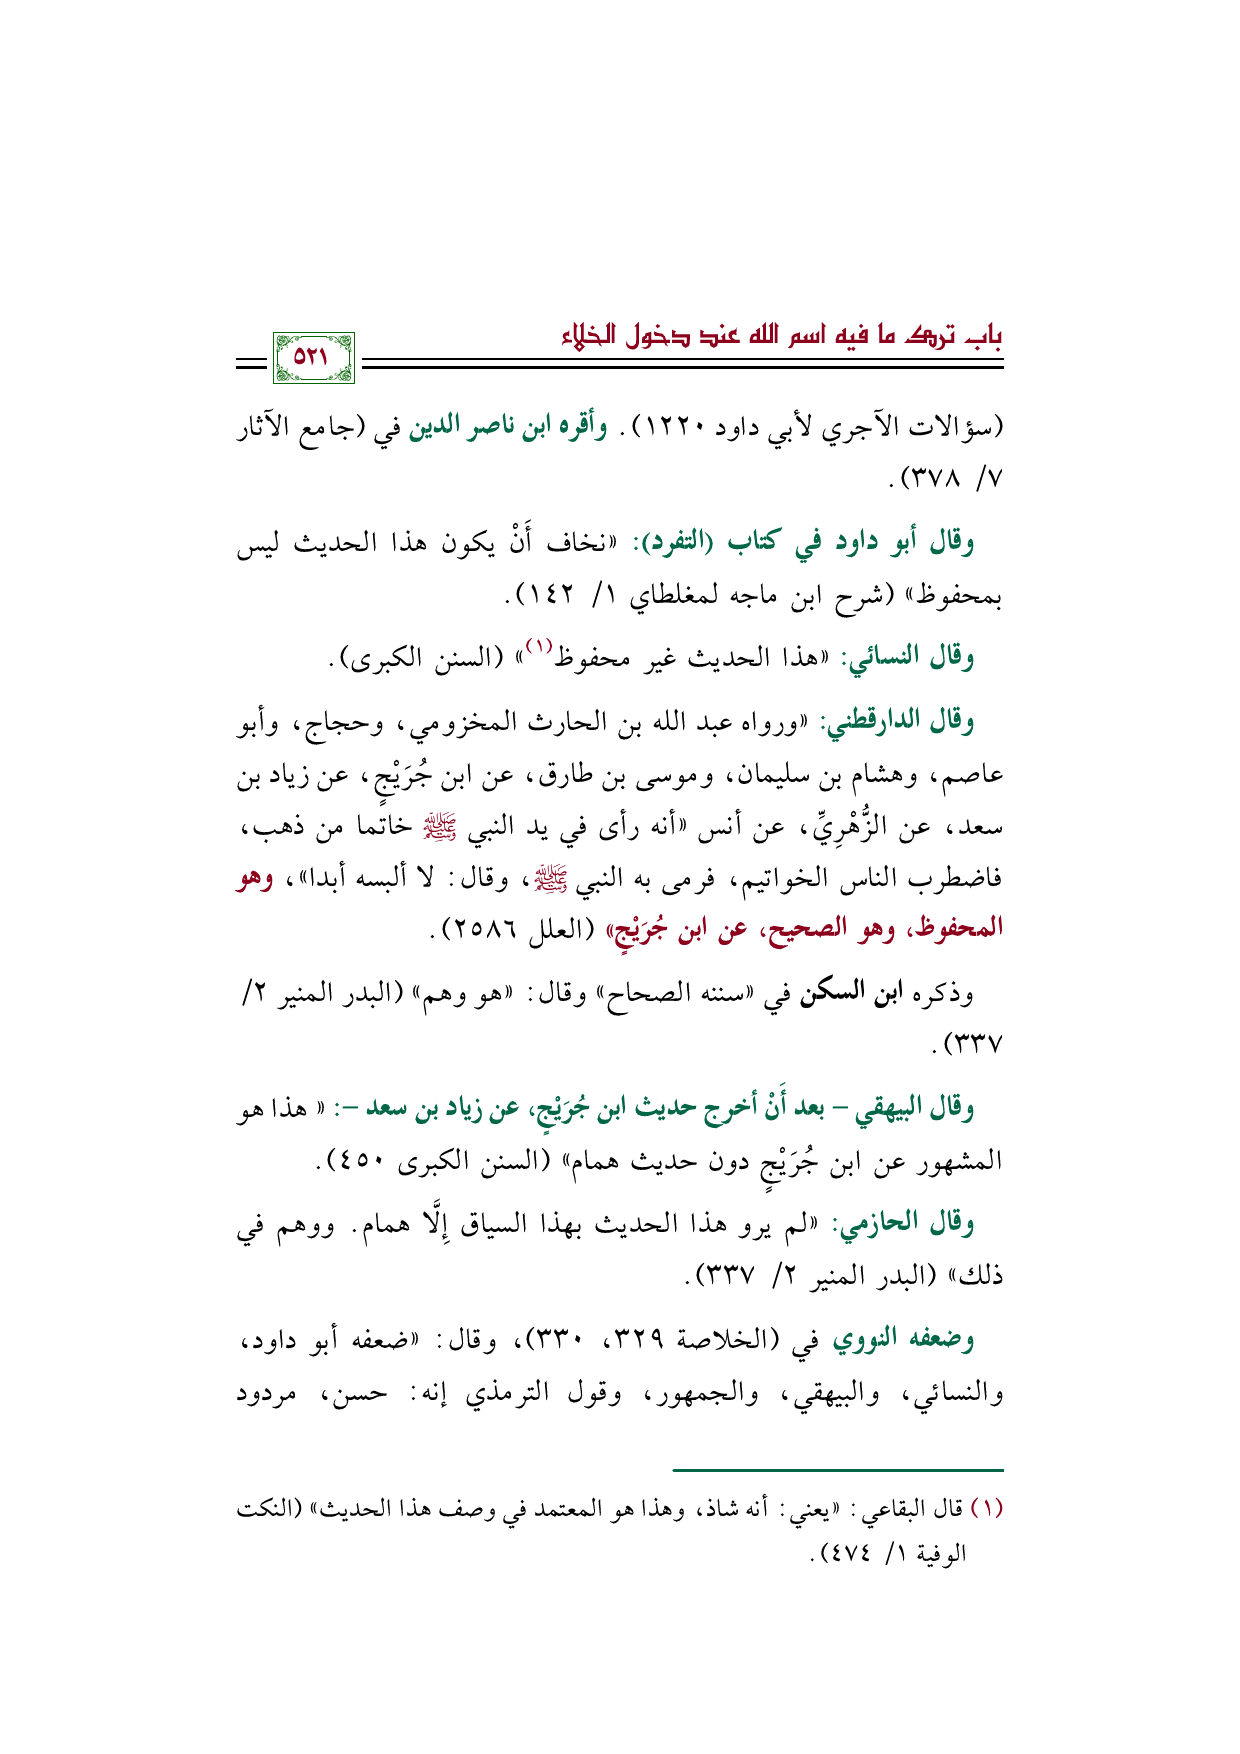 باب ترك ما فيه اسم الله عند دخول الخلاء
٥٢١
(سؤالات الآجري لأبي داود ١٢٢٠). وأقره ابن ناصر الدين في (جامع الآثار
٧/ ٣٧٨).
وقال أبو داود في كتاب (التفرد): «نخاف أَنْ يكون هذا الحديث ليس
بمحفوظ» (شرح ابن ماجه لمغلطاي ١/ ١٤٢).
وقال النسائي: «هذا الحديث غير محفوظ(١)» (السنن الكبرى).
وقال الدارقطني: «ورواه عبد الله بن الحارث المخزومي، وحجاج، وأبو
عاصم، وهشام بن سليمان، وموسى بن طارق، عن ابن جُرَيْجٍ، عن زياد بن
سعد، عن الزُّهْرِيِّ، عن أنس «أنه رأى في يد النبي ﷺ خاتما من ذهب،
فاضطرب الناس الخواتيم، فرمى به النبي ﷺ، وقال: لا ألبسه أبدا»، وهو
المحفوظ، وهو الصحيح، عن ابن جُرَيْجٍ» (العلل ٢٥٨٦).
وذكره ابن السكن في «سننه الصحاح» وقال: «هو وهم» (البدر المنير ٢/
٣٣٧).
وقال البيهقي – بعد أَنْ أخرج حديث ابن جُرَيْجٍ، عن زياد بن سعد –: « هذا هو
المشهور عن ابن جُرَيْجٍ دون حديث همام» (السنن الكبرى ٤٥٠).
وقال الحازمي: «لم يرو هذا الحديث بهذا السياق إِلَّا همام. ووهم في
ذلك» (البدر المنير ٢/ ٣٣٧).
وضعفه النووي في (الخلاصة ٣٢٩، ٣٣٠)، وقال: «ضعفه أبو داود،
والنسائي، والبيهقي، والجمهور، وقول الترمذي إنه: حسن، مردود
(١) قال البقاعي: «يعني: أنه شاذ، وهذا هو المعتمد في وصف هذا الحديث» (النكت
الوفية ١/ ٤٧٤).